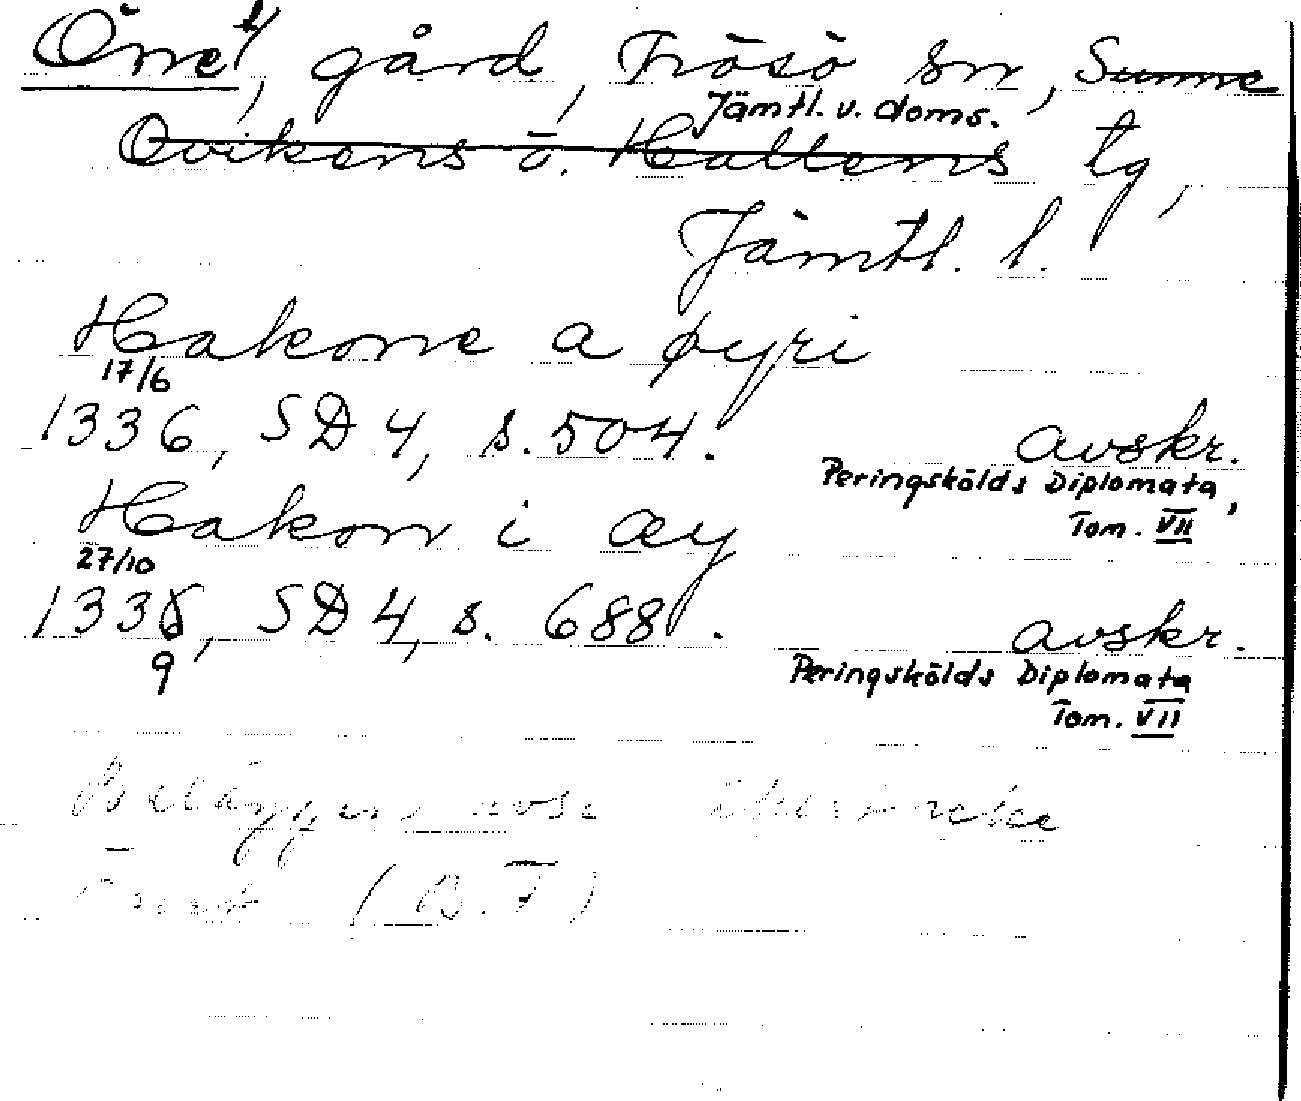 Önet, gård, Frösö sn, Sunne
Jämtl. v. doms.
Ovikens o. Hallens tg,
Jämtl. l.
Hakone a øyri
17/6
1336, SD 4, s. 504. avskr.
Peringskölds Diplomata,
Tom. VII
Hakon i œy
27/10
1338, SD 4, s. 688. avskr.
9
Peringskölds Diplomata
Tom. VII
Beläggen avse
(B. F)